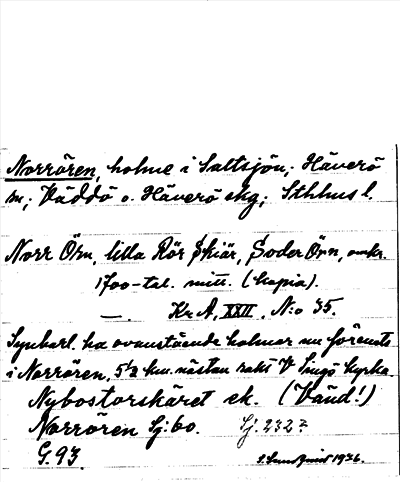 Norrören, holme i Saltsjön; Häverö
sn; Väddö o. Häverö skg; Sthlms l.
Norr Örn, lilla Rör Skiär, Söder Örn, omkr.
1700-tal. mitt. (kopia).
—. Kr A, XXII, N:o 35.
Synbarl. ha ovanstående holmar nu förenats
i Norrören, 5½ km. nästan rakt V Singö kyrka.
Nybostorskäret ek. (Vänd!)
Norrören Sj:bo. Sj. 232?
G. 93. 1926.